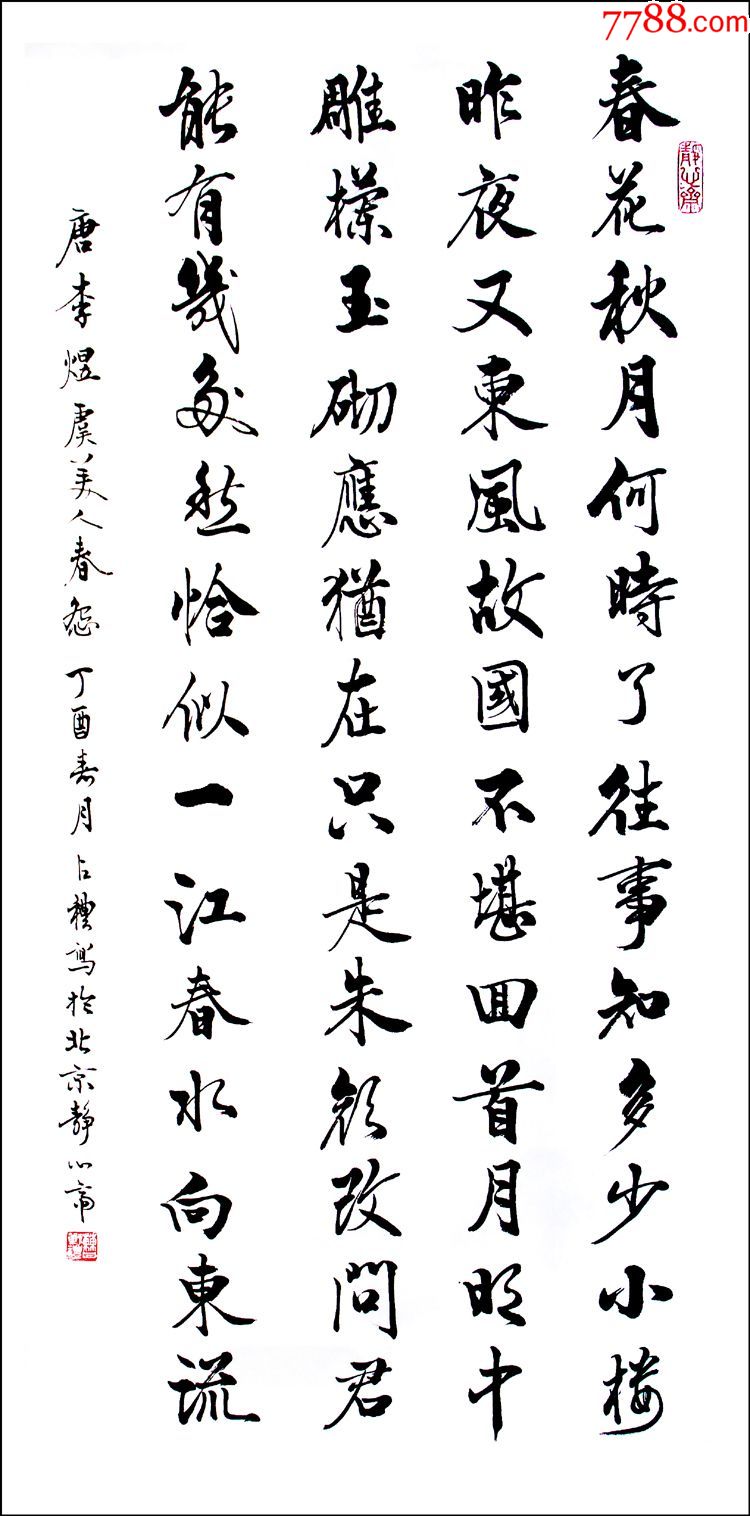 7788.com
靜心齋
春花秋月何時了往事知多少小樓
昨夜又東風故國不堪回首月明中
雕欄玉砌應猶在只是朱顏改問君
能有幾多愁恰似一江春水向東流
唐李煜虞美人春怨丁酉月占禮寫於北京靜心齋